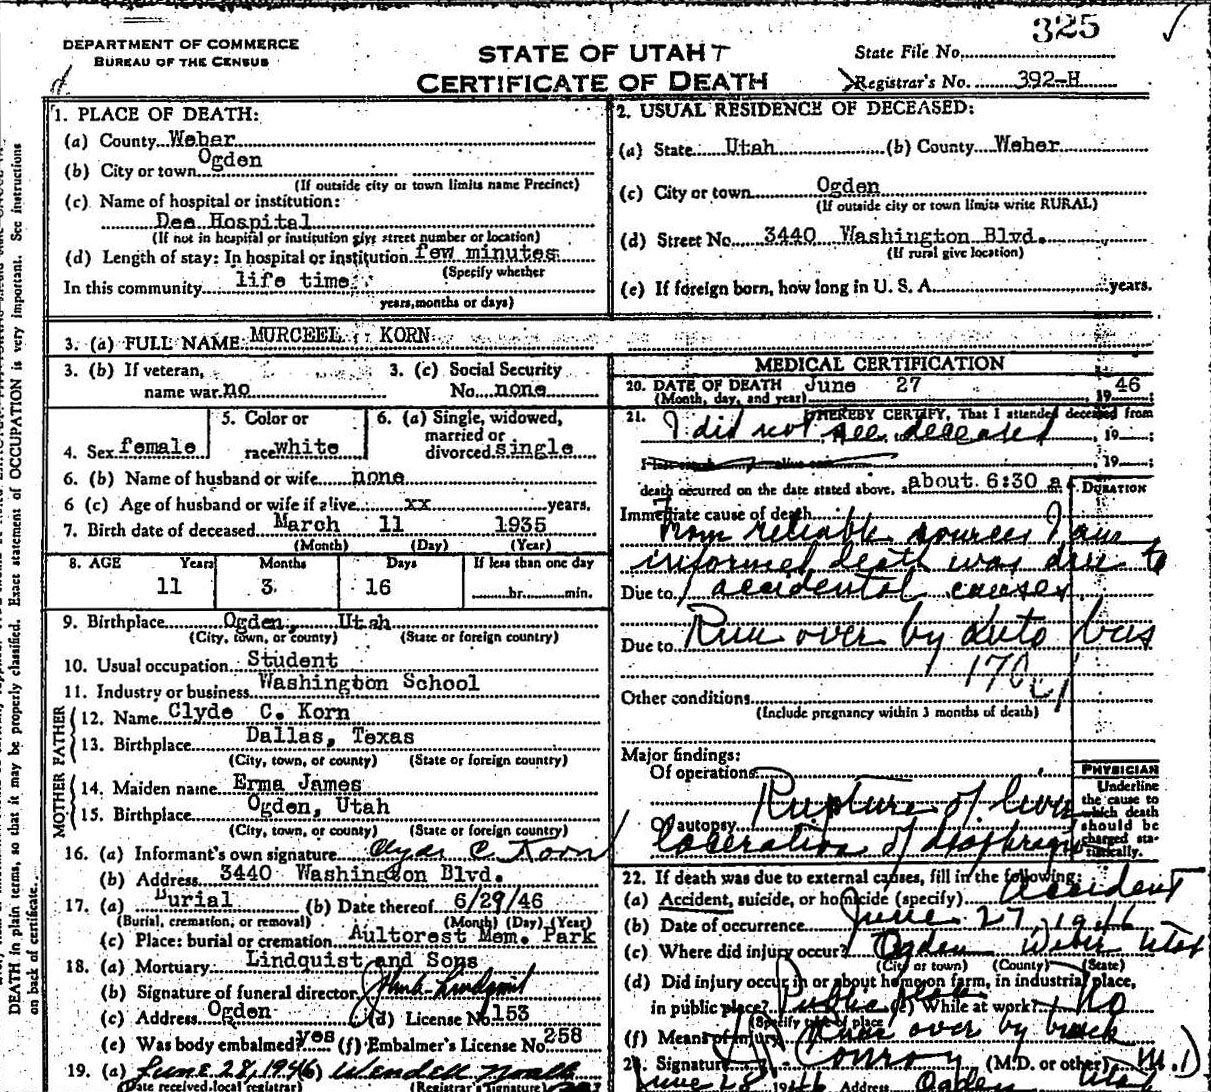 325
DEPARTMENT OF COMMERCE
BUREAU OF THE CENSUS
STATE OF UTAH
CERTIFICATE OF DEATH
State File No.
Registrar's No. 392-H
1. PLACE OF DEATH:
(a) County Weber
(b) City or town Ogden
(If outside city or town limits name Precinct)
(c) Name of hospital or institution:
Dee Hospital
(If not in hospital or institution give street number or location)
(d) Length of stay: In hospital or institution few minutes
(Specify whether
In this community life time
years, months or days)
2. USUAL RESIDENCE OF DECEASED:
(a) State Utah (b) County Weber
(c) City or town Ogden
(If outside city or town limits write RURAL)
(d) Street No. 3440 Washington Blvd.
(If rural give location)
(e) If foreign born, how long in U. S. A. years.
3. (a) FULL NAME MURCEEL KORN
3. (b) If veteran, name war no
3. (c) Social Security No. none
4. Sex female
5. Color or race white
6. (a) Single, widowed, married or divorced single
6. (b) Name of husband or wife none
6 (c) Age of husband or wife if alive xx years.
7. Birth date of deceased March 11 1935
(Month) (Day) (Year)
8. AGE Years Months Days If less than one day
11 3 16 hr. min.
9. Birthplace Ogden, Utah
(City, town, or county) (State or foreign country)
10. Usual occupation Student
11. Industry or business Washington School
FATHER
12. Name Clyde C. Korn
13. Birthplace Dallas, Texas
(City, town, or county) (State or foreign country)
MOTHER
14. Maiden name Erma James
15. Birthplace Ogden, Utah
(City, town, or county) (State or foreign country)
16. (a) Informant's own signature Clyde C. Korn
(b) Address 3440 Washington Blvd.
17. (a) Burial (b) Date thereof 6/29/46
(Burial, cremation, or removal) (Month) (Day) (Year)
(c) Place: burial or cremation Aultorest Mem. Park
18. (a) Mortuary Lindquist and Sons
(b) Signature of funeral director Lindquist
(c) Address Ogden (d) License No. 153
(e) Was body embalmed? yes (f) Embalmer's License No. 258
19. (a) June 28, 1946 Wendell
(Date received local registrar) (Registrar's signature)
MEDICAL CERTIFICATION
20. DATE OF DEATH June 27 1946
(Month, day, and year)
21. I HEREBY CERTIFY, That I attended deceased from
I did not see deceased , 19 ;
, 19 ;
death occurred on the date stated above, at about 6:30 a
DURATION
Immediate cause of death
From reliable sources I am
informed death was due to
Due to accidental causes.
Due to Run over by Auto bus
170
Other conditions
(Include pregnancy within 3 months of death)
Major findings:
Of operations
Rupture of liver
Of autopsy
laceration of diaphragm
PHYSICIAN
Underline the cause to which death should be charged statistically.
22. If death was due to external causes, fill in the following:
(a) Accident, suicide, or homicide (specify) Accident
(b) Date of occurrence June 27, 1946
(c) Where did injury occur? Ogden Weber Utah
(City or town) (County) (State)
(d) Did injury occur in or about home, on farm, in industrial place,
in public place? Public place (e) While at work? No
(Specify type of place
(f) Means of injury Run over by
Signature Conroy (M.D. or other) M.D
June 28 1946 Address Ogden
DEATH in plain terms, so that it may be properly classified. Exact statement of OCCUPATION is very important. See instructions
on back of certificate.